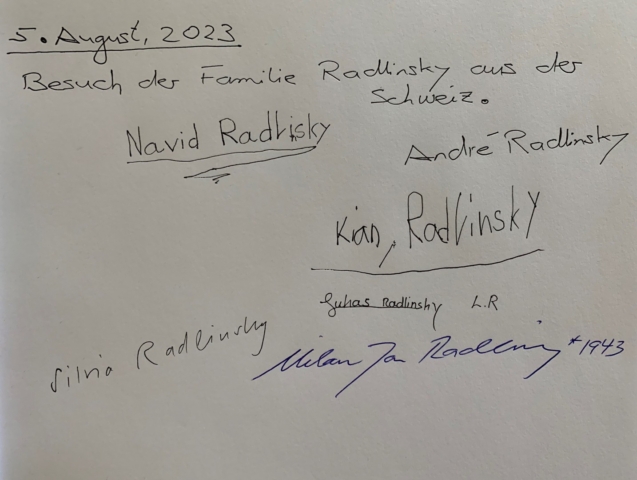 5. August, 2023
Besuch der Familie Radlinsky aus der
Schweiz.
Navid Radlisky
André Radlinsky
Kian, Radlinsky
Luhas Radlinsky L.R
Silvia Radlinsky
Milan Jan Radlinsky *1943